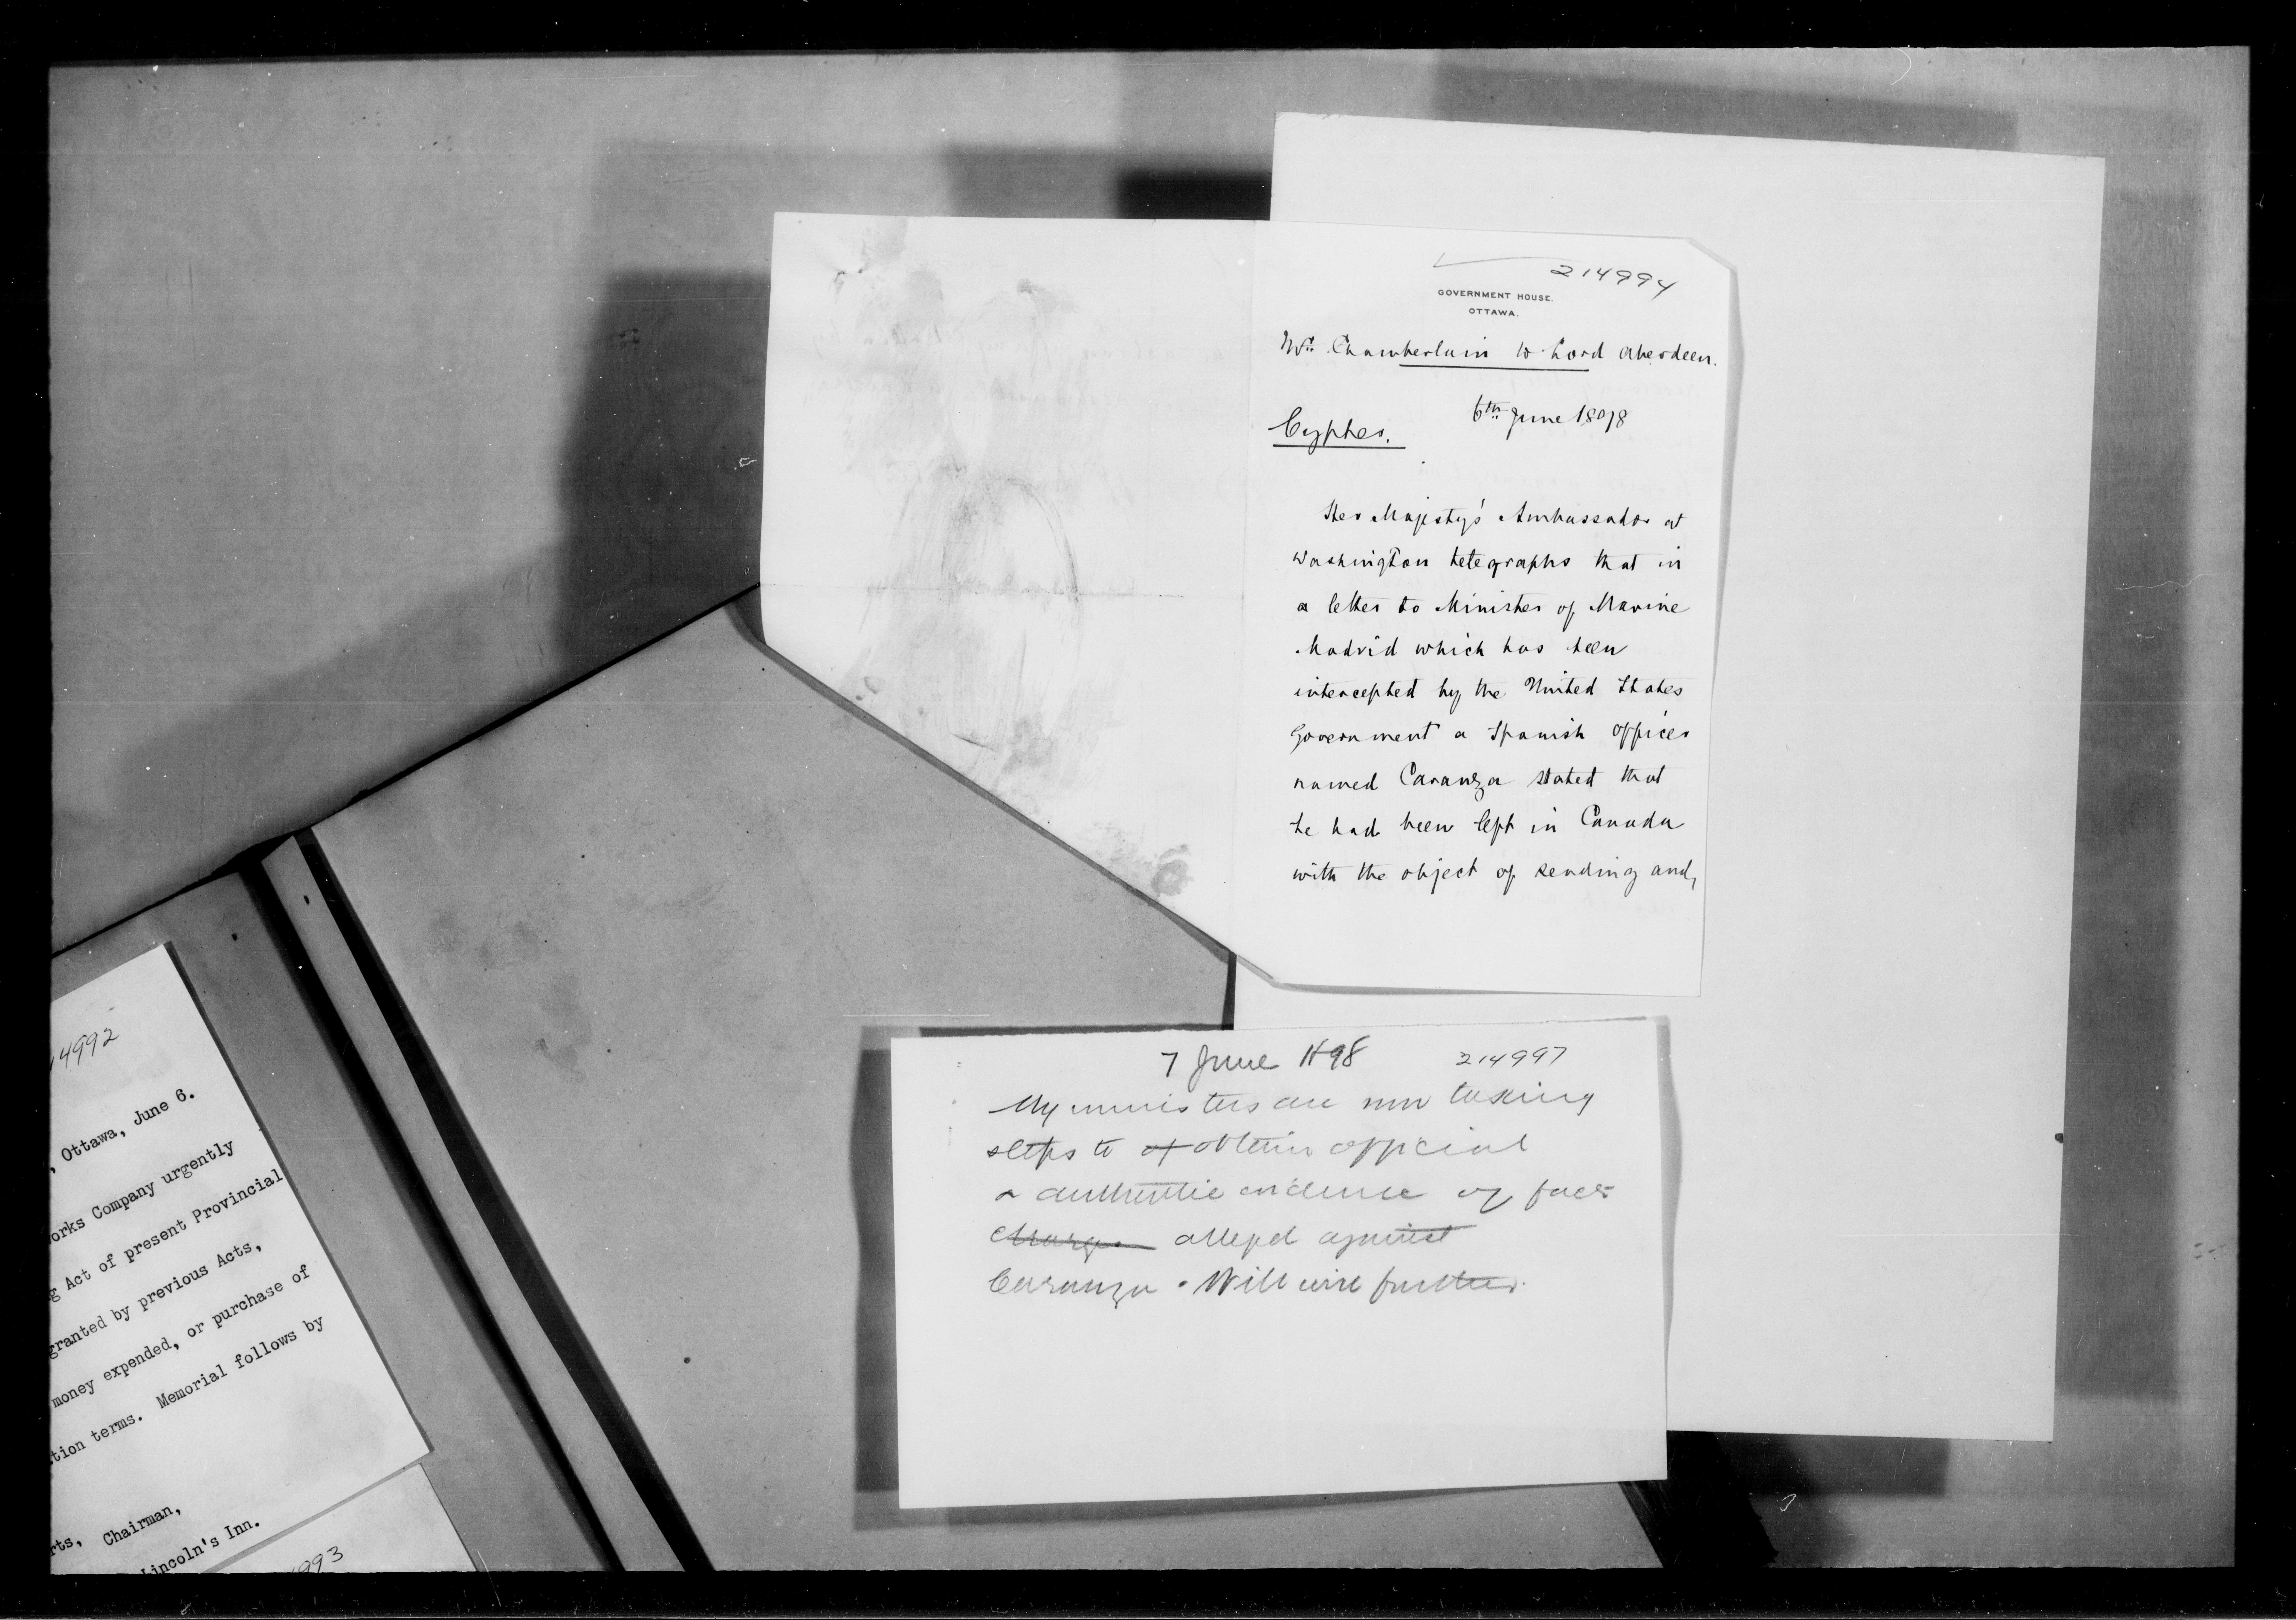 214994
GOVERNMENT HOUSE.
OTTAWA.
Mr. Chamberlain to Lord Aberdeen.
6th June 1898
Cypher.
Her Majesty's Ambassador at
Washington telegraphs that in
a letter to Minister of Marine
Madrid which has been
intercepted by the United States
Government a Spanish officer
named Caranza stated that
he had been left in Canada
with the object of sending and,
7 June 1898 214997
My ministers are now taking
steps to of obtain official
& authentic evidence of facts
charges alleged against
Caranza. Will wire further.
14992
, Ottawa, June 6.
orks Company urgently
g Act of present Provincial
granted by previous Acts,
money expended, or purchase of
tion terms. Memorial follows by
rts, Chairman,
Lincoln's Inn.
993